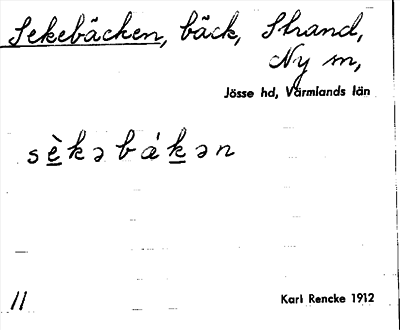 Sekebäcken, bäck, Strand,
Ny sn,
Jösse hd, Värmlands län
sèkəbákən
11
Karl Rencke 1912